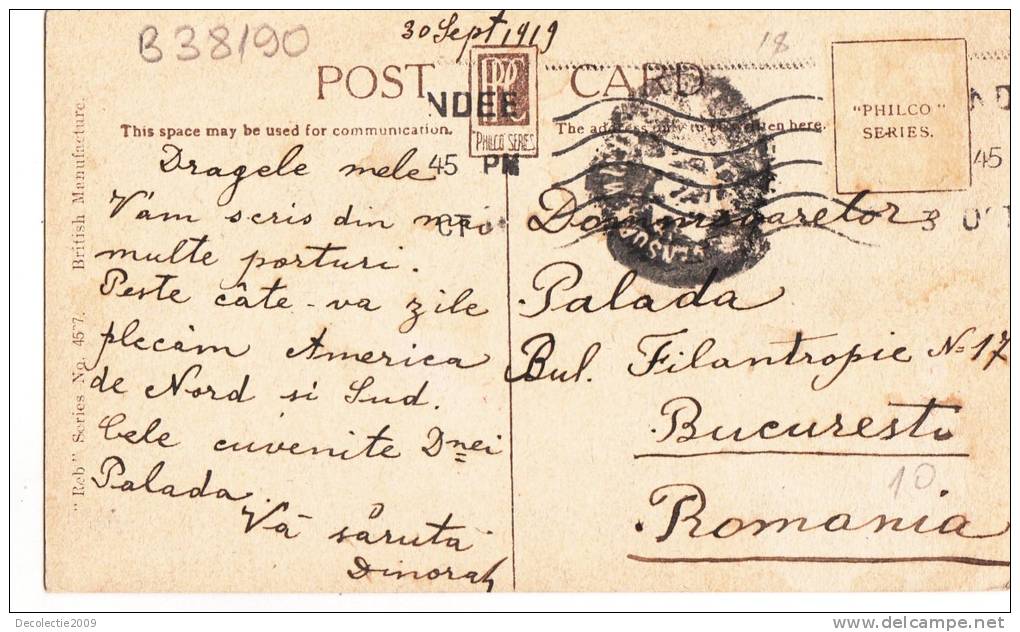 B 38/90
30 Sept 1919
18
POST CARD
PHILCO SERIES
"PHILCO"
SERIES.
NDEE
45 PM
3 OCT
45
This space may be used for communication.
The address only to be written here.
Dragele mele
V'am scris din mai
multe porturi.
Peste câte-va zile
plecăm America
de Nord si Sud.
Cele cuvenite Dnei
Palada.
Vă săruta
Dinorah
Palada
Bul. Filantropie No 17
Bucuresti
10
Romania
"Reb" Series No. 45 7. British Manufacture.
Decolectie2009
delcampe.net